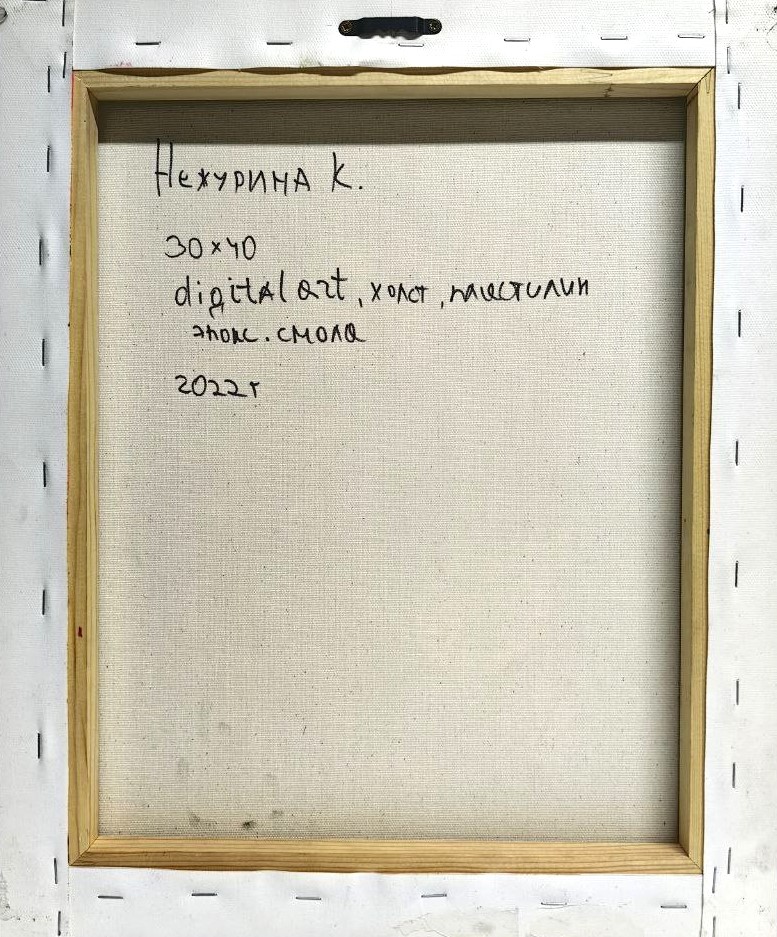 Нехурина К.
30×40
digital art, холст, пластилин
эпокс. смола
2022г